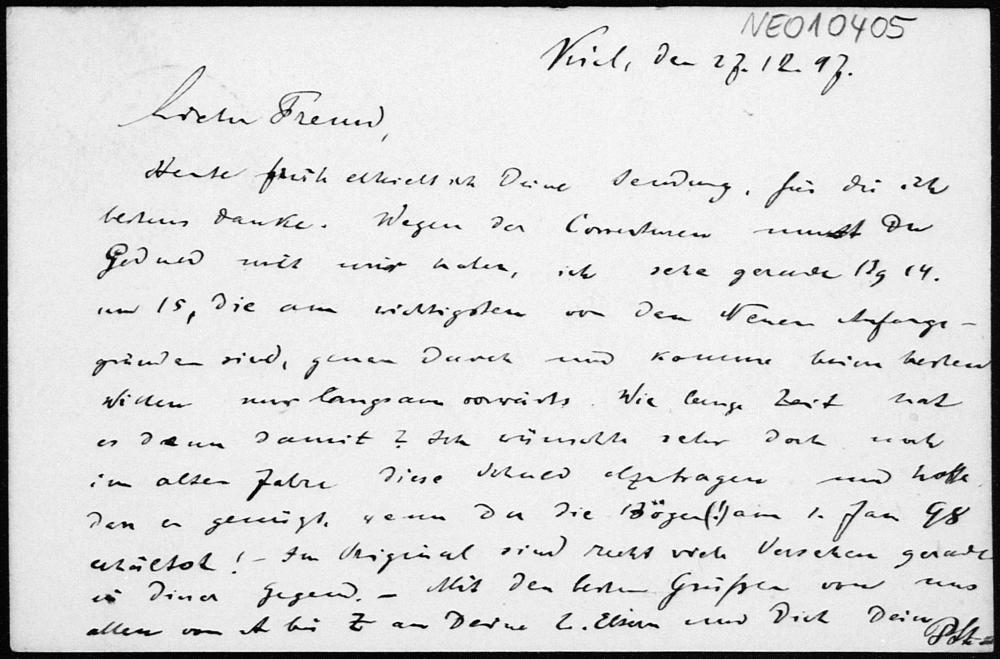 NE010405
Kiel, den 27.12.97.
Lieber Freund,
Heute früh erhielt ich Deine Sendung, für die ich
bestens danke. Wegen der Correcturen musst Du
Geduld mit mir haben, ich sehe gerade Bg 14.
und 15, die am wichtigsten von den Neuen Anfangs-
gründen sind, genau durch und komme beim besten
Willen nur langsam vorwärts. Wie lange Zeit hat
es denn damit? Ich wünschte sehr doch noch
im alten Jahre diese Schuld abzutragen und hoffe,
dass es genügt, wenn Du die Bögen(!) am 1. Jan 98
erhältst! – Im Original sind recht viele Versehen gerade
in dieser Gegend. – Mit den besten Grüßen von uns
allen von A bis Z an Deine l. Eltern und Dich Dein